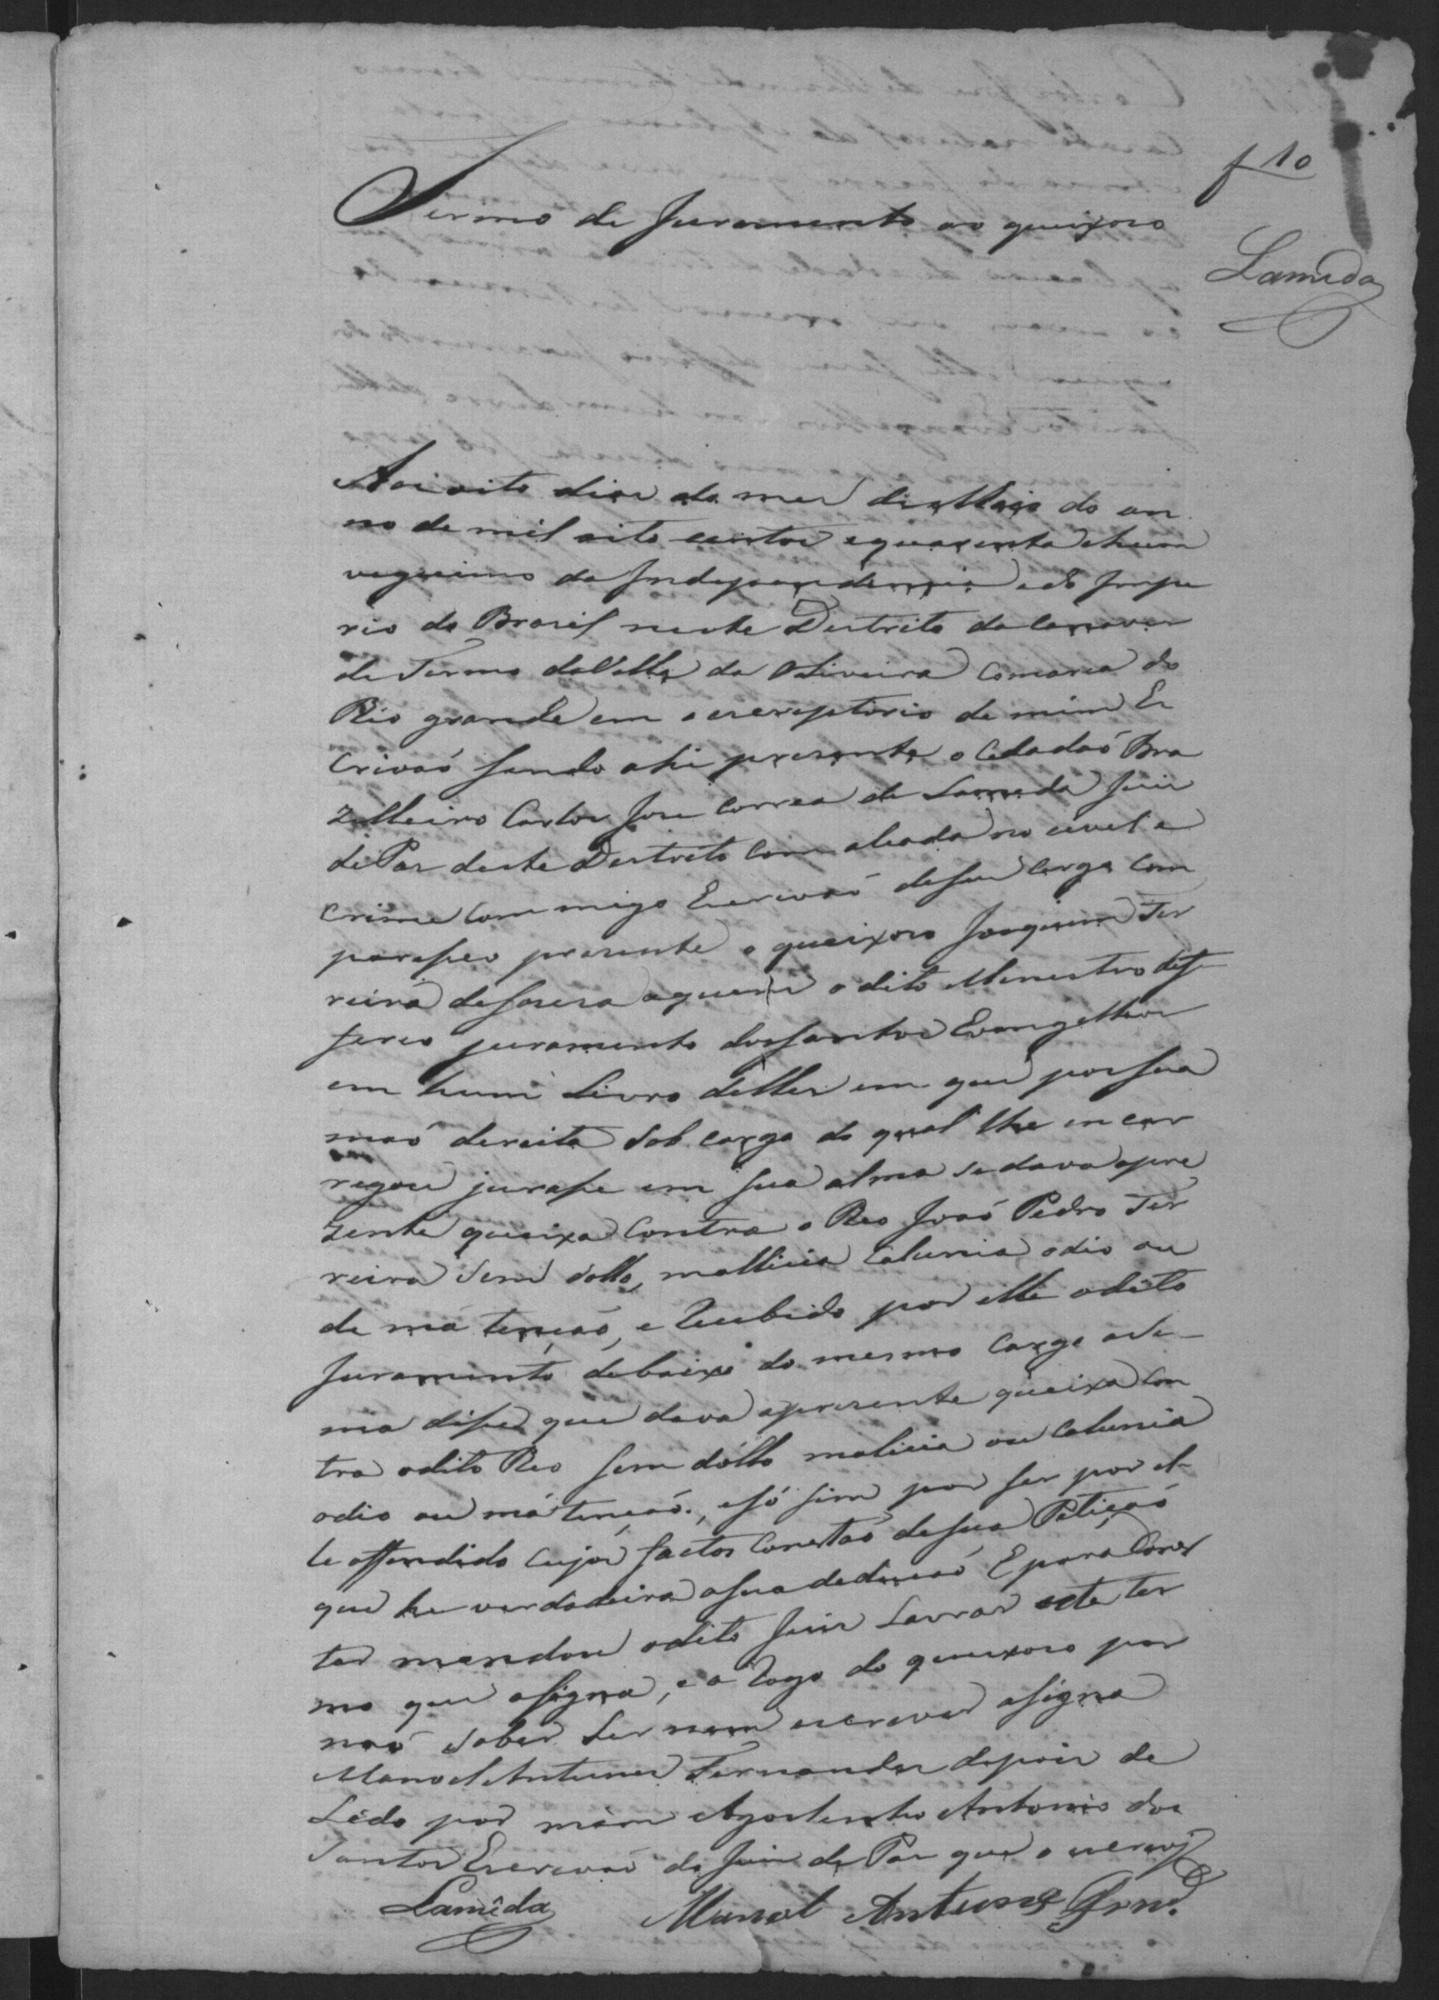 f 10
Termo de Juramento ao queixoso
Lamêda
Aos oito dias do mes de Maio do an
no de mil oito centos e quarenta e hum
vigesimo da Independencia e do Impe
rio do Brasil neste Destrito da Canaver
de Termo da Villa da Oliveira Comarca do
Rio grande em o escreptorio de mim Es
crivaõ sendo ahi presente o Cidadaõ Bra
zilleiro Carlos Jose Correa de Lameda Juis
de Pas deste Destrito com alsada no civel e
crime Com migo Escrivaõ de seu Cargo com
pareseo presente o queixoso Joaquim Fer
reira de Sousa a quem o dito Menestro def
ferio juramento dos santos Evangelhos
em hum Livro delles em que pos sua
maõ dereita sob cargo do qual lhe encar
regou jurase em sua alma se dava apre
zente queixa Contra o Reo Joaõ Pedro Fer
reira sem dollo, mallicia Calunia odio ou
de má tençaõ, e Recebido por elle odito
Juramento debaixo do mesmo Cargo asi
ma dise que dava apresente queixa Con
tra odito Reo sem dollo malicia ou Calunia
odio ou má tençaõ, e só sim por ser por el
le offendido Cujos factos Constaõ de sua Petiçaõ
que he verdadeira a sua dedusaõ E para Cons
tar mandou odito Juis Lavrar este ter
mo que asigna, e a Rogo do queixoso por
naõ saber Ler nem escrever asigna
Manoel Antunes Fernandes depois de
Lido por mim Agostinho Antonio dos
Santos Escrivaõ do Juis de Pas que o escrevj
Lamêda Manoel Antunes Frnd.